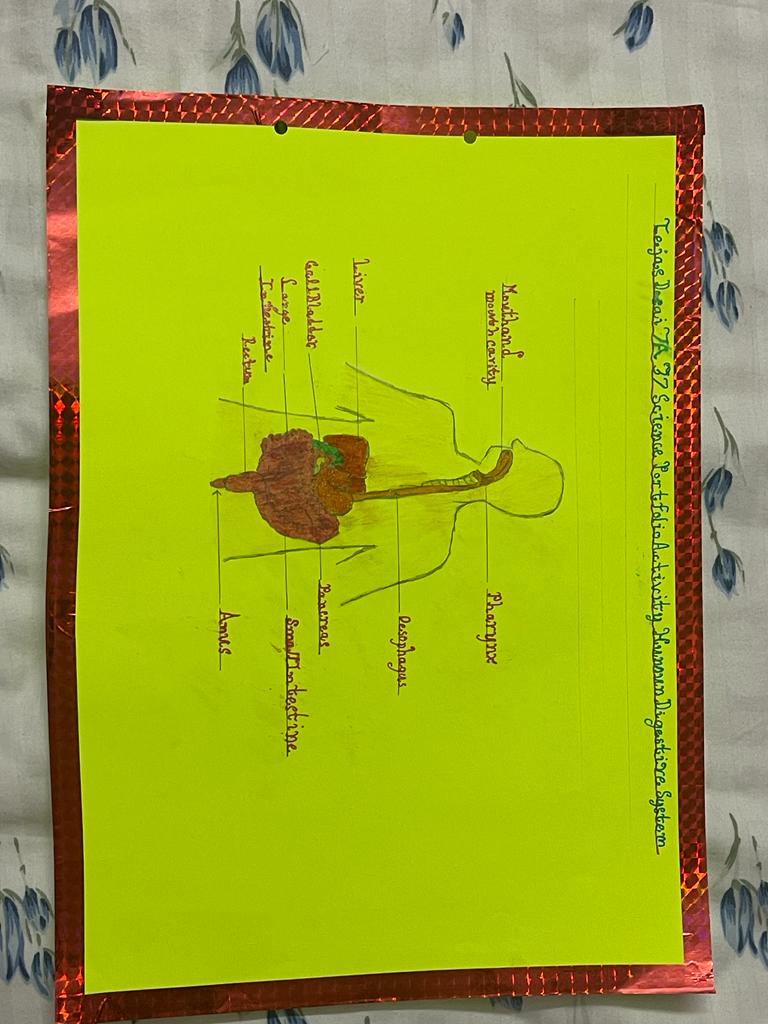 Tejas Desai 7A 37 Science Portfolio Activity Human Digestive System
Mouth and
mouth cavity
Pharynx
Oesophagus
Liver
Pancreas
Gall Bladder
Large
Intestine
Small Intestine
Rectum
Anus